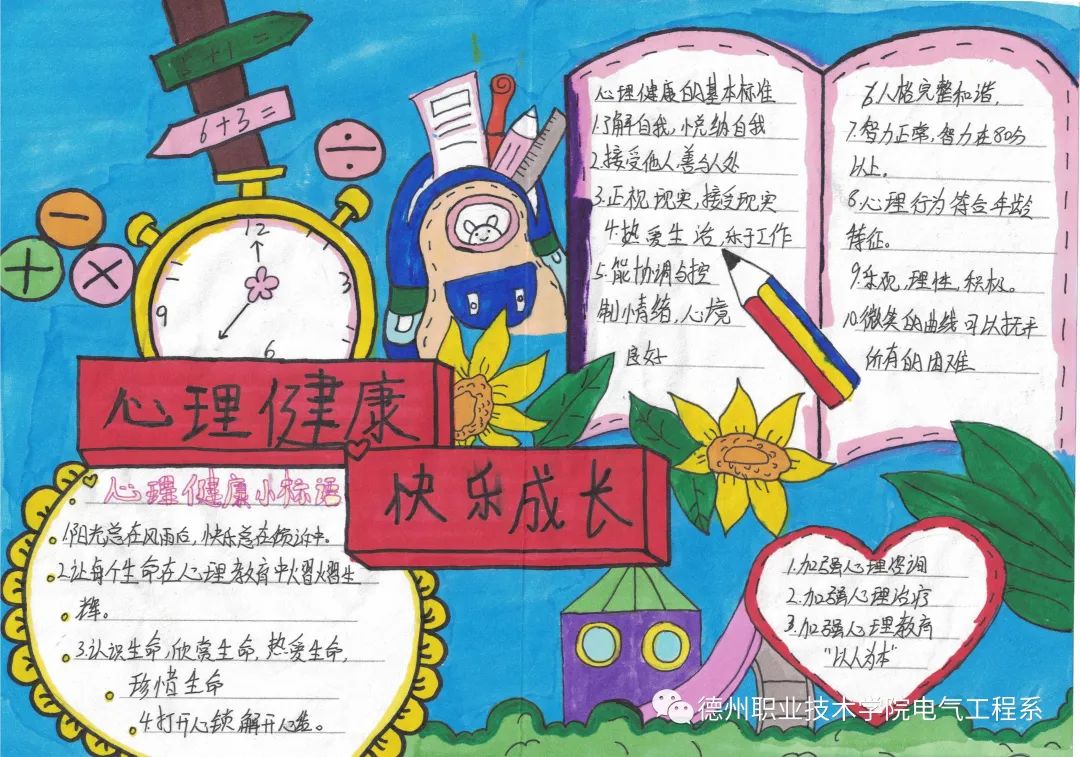 5+1=
6+3=
12
3
6
9
心理健康
快乐成长
心理健康的基本标准
1.了解自我,悦纳自我
2.接受他人善与人处
3.正视现实,接受现实
4热爱生活,乐于工作
5.能协调与控
制情绪,心境
良好
6人格完整和谐,
7.智力正常,智力在80分
以上。
8.心理行为符合年龄
特征。
9.乐观,理性,积极。
10.微笑的曲线可以抚平
所有的困难
心理健康小标语
1.阳光总在风雨后,快乐总在倾诉中。
2.让每个生命在心理教育中熠熠生
辉。
3.认识生命,欣赏生命,热爱生命,
珍惜生命
4.打开心锁解开心
1.加强心理咨询
2.加强心理治疗
3.加强心理教育
"以人为本"
德州职业技术学院电气工程系